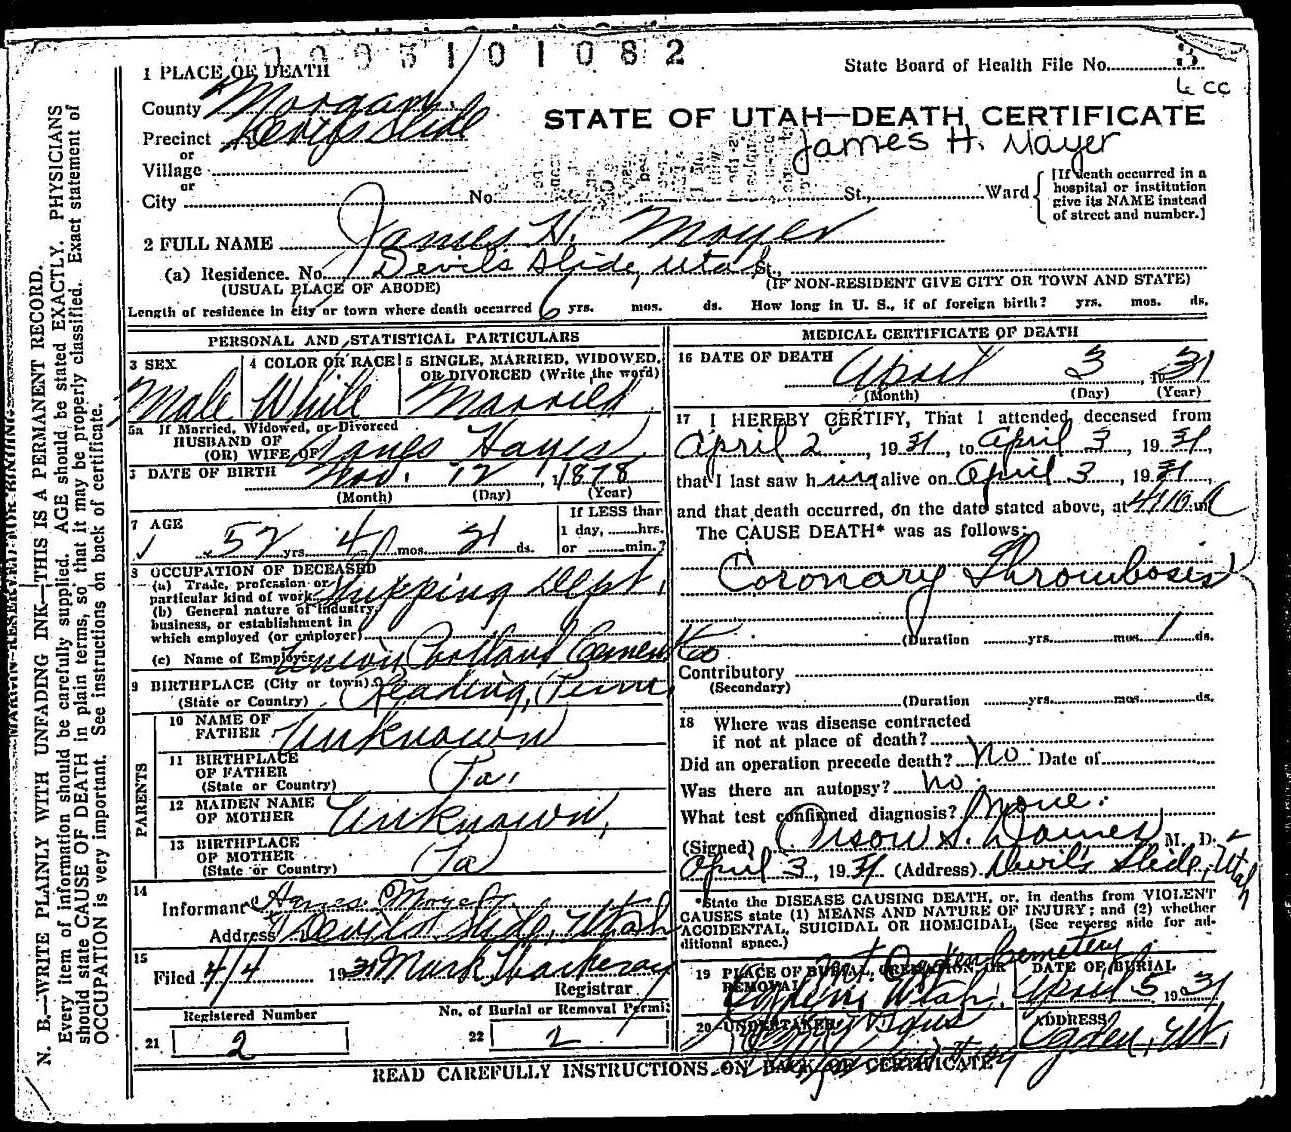 1003101082
State Board of Health File No. 3
6 cc
1 PLACE OF DEATH
County Morgan
STATE OF UTAH—DEATH CERTIFICATE
Precinct Devils Slide
James H. Mayer
or
Village
or
City No. St., Ward
[If death occurred in a hospital or institution give its NAME instead of street and number.]
2 FULL NAME James H. Mayer
(a) Residence. No. Devils Slide, Utah St.,
(USUAL PLACE OF ABODE) (IF NON-RESIDENT GIVE CITY OR TOWN AND STATE)
Length of residence in city or town where death occurred 6 yrs. mos. ds. How long in U. S., if of foreign birth? yrs. mos. ds.
PERSONAL AND STATISTICAL PARTICULARS
3 SEX 4 COLOR OR RACE 5 SINGLE, MARRIED, WIDOWED,
OR DIVORCED (Write the word)
Male White Married
5a If Married, Widowed, or Divorced
HUSBAND OF
(OR) WIFE OF Hayes
6 DATE OF BIRTH Nov. 12, 1878
(Month) (Day) (Year)
7 AGE If LESS than
1 day, hrs.
52 yrs. 4 mos. 21 ds. or min.?
8 OCCUPATION OF DECEASED
(a) Trade, profession or
particular kind of work Shipping Dept.
(b) General nature of industry,
business, or establishment in
which employed (or employer)
(c) Name of Employer Union Portland Cement Co
9 BIRTHPLACE (City or town) Reading, Penn.
(State or Country)
PARENTS
10 NAME OF
FATHER Unknown
11 BIRTHPLACE
OF FATHER Pa.
(State or Country)
12 MAIDEN NAME
OF MOTHER Unknown,
13 BIRTHPLACE
OF MOTHER Pa
(State or Country)
14
Informant Agnes Mayer
Address Devils Slide, Utah
15
Filed 4/4 1931 Mark Thackeray
Registrar
Registered Number No. of Burial or Removal Permit
21 2 22 2
MEDICAL CERTIFICATE OF DEATH
16 DATE OF DEATH April 3, 1931
(Month) (Day) (Year)
17 I HEREBY CERTIFY, That I attended deceased from
April 2, 1931, to April 3, 1931,
that I last saw him alive on April 3, 1931,
and that death occurred, on the date stated above, at 4:10
The CAUSE DEATH* was as follows:
Coronary Thrombosis
(Duration yrs. mos. 1 ds.
Contributory
(Secondary)
(Duration yrs. mos. ds.
18 Where was disease contracted
if not at place of death?
Did an operation precede death? No Date of
Was there an autopsy? no
What test confirmed diagnosis? None.
(Signed) Orson S. M. D.
April 3, 1931 (Address) Devil's Slide, Utah
*State the DISEASE CAUSING DEATH, or, in deaths from VIOLENT
CAUSES state (1) MEANS AND NATURE OF INJURY; and (2) whether
ACCIDENTAL, SUICIDAL OR HOMICIDAL. (See reverse side for ad-
ditional space.)
19 PLACE OF BURIAL, CREMATION OR REMOVAL DATE OF BURIAL
Mt. Ogden Cemetery
Ogden, Utah. April 5 1931
20 UNDERTAKER ADDRESS
Ogden, Ut.
READ CAREFULLY INSTRUCTIONS ON BACK OF CERTIFICATE
MARGIN RESERVED FOR BINDING
N. B.—WRITE PLAINLY WITH UNFADING INK—THIS IS A PERMANENT RECORD.
Every item of information should be carefully supplied. AGE should be stated EXACTLY. PHYSICIANS
should state CAUSE OF DEATH in plain terms, so that it may be properly classified. Exact statement of
OCCUPATION is very important. See instructions on back of certificate.